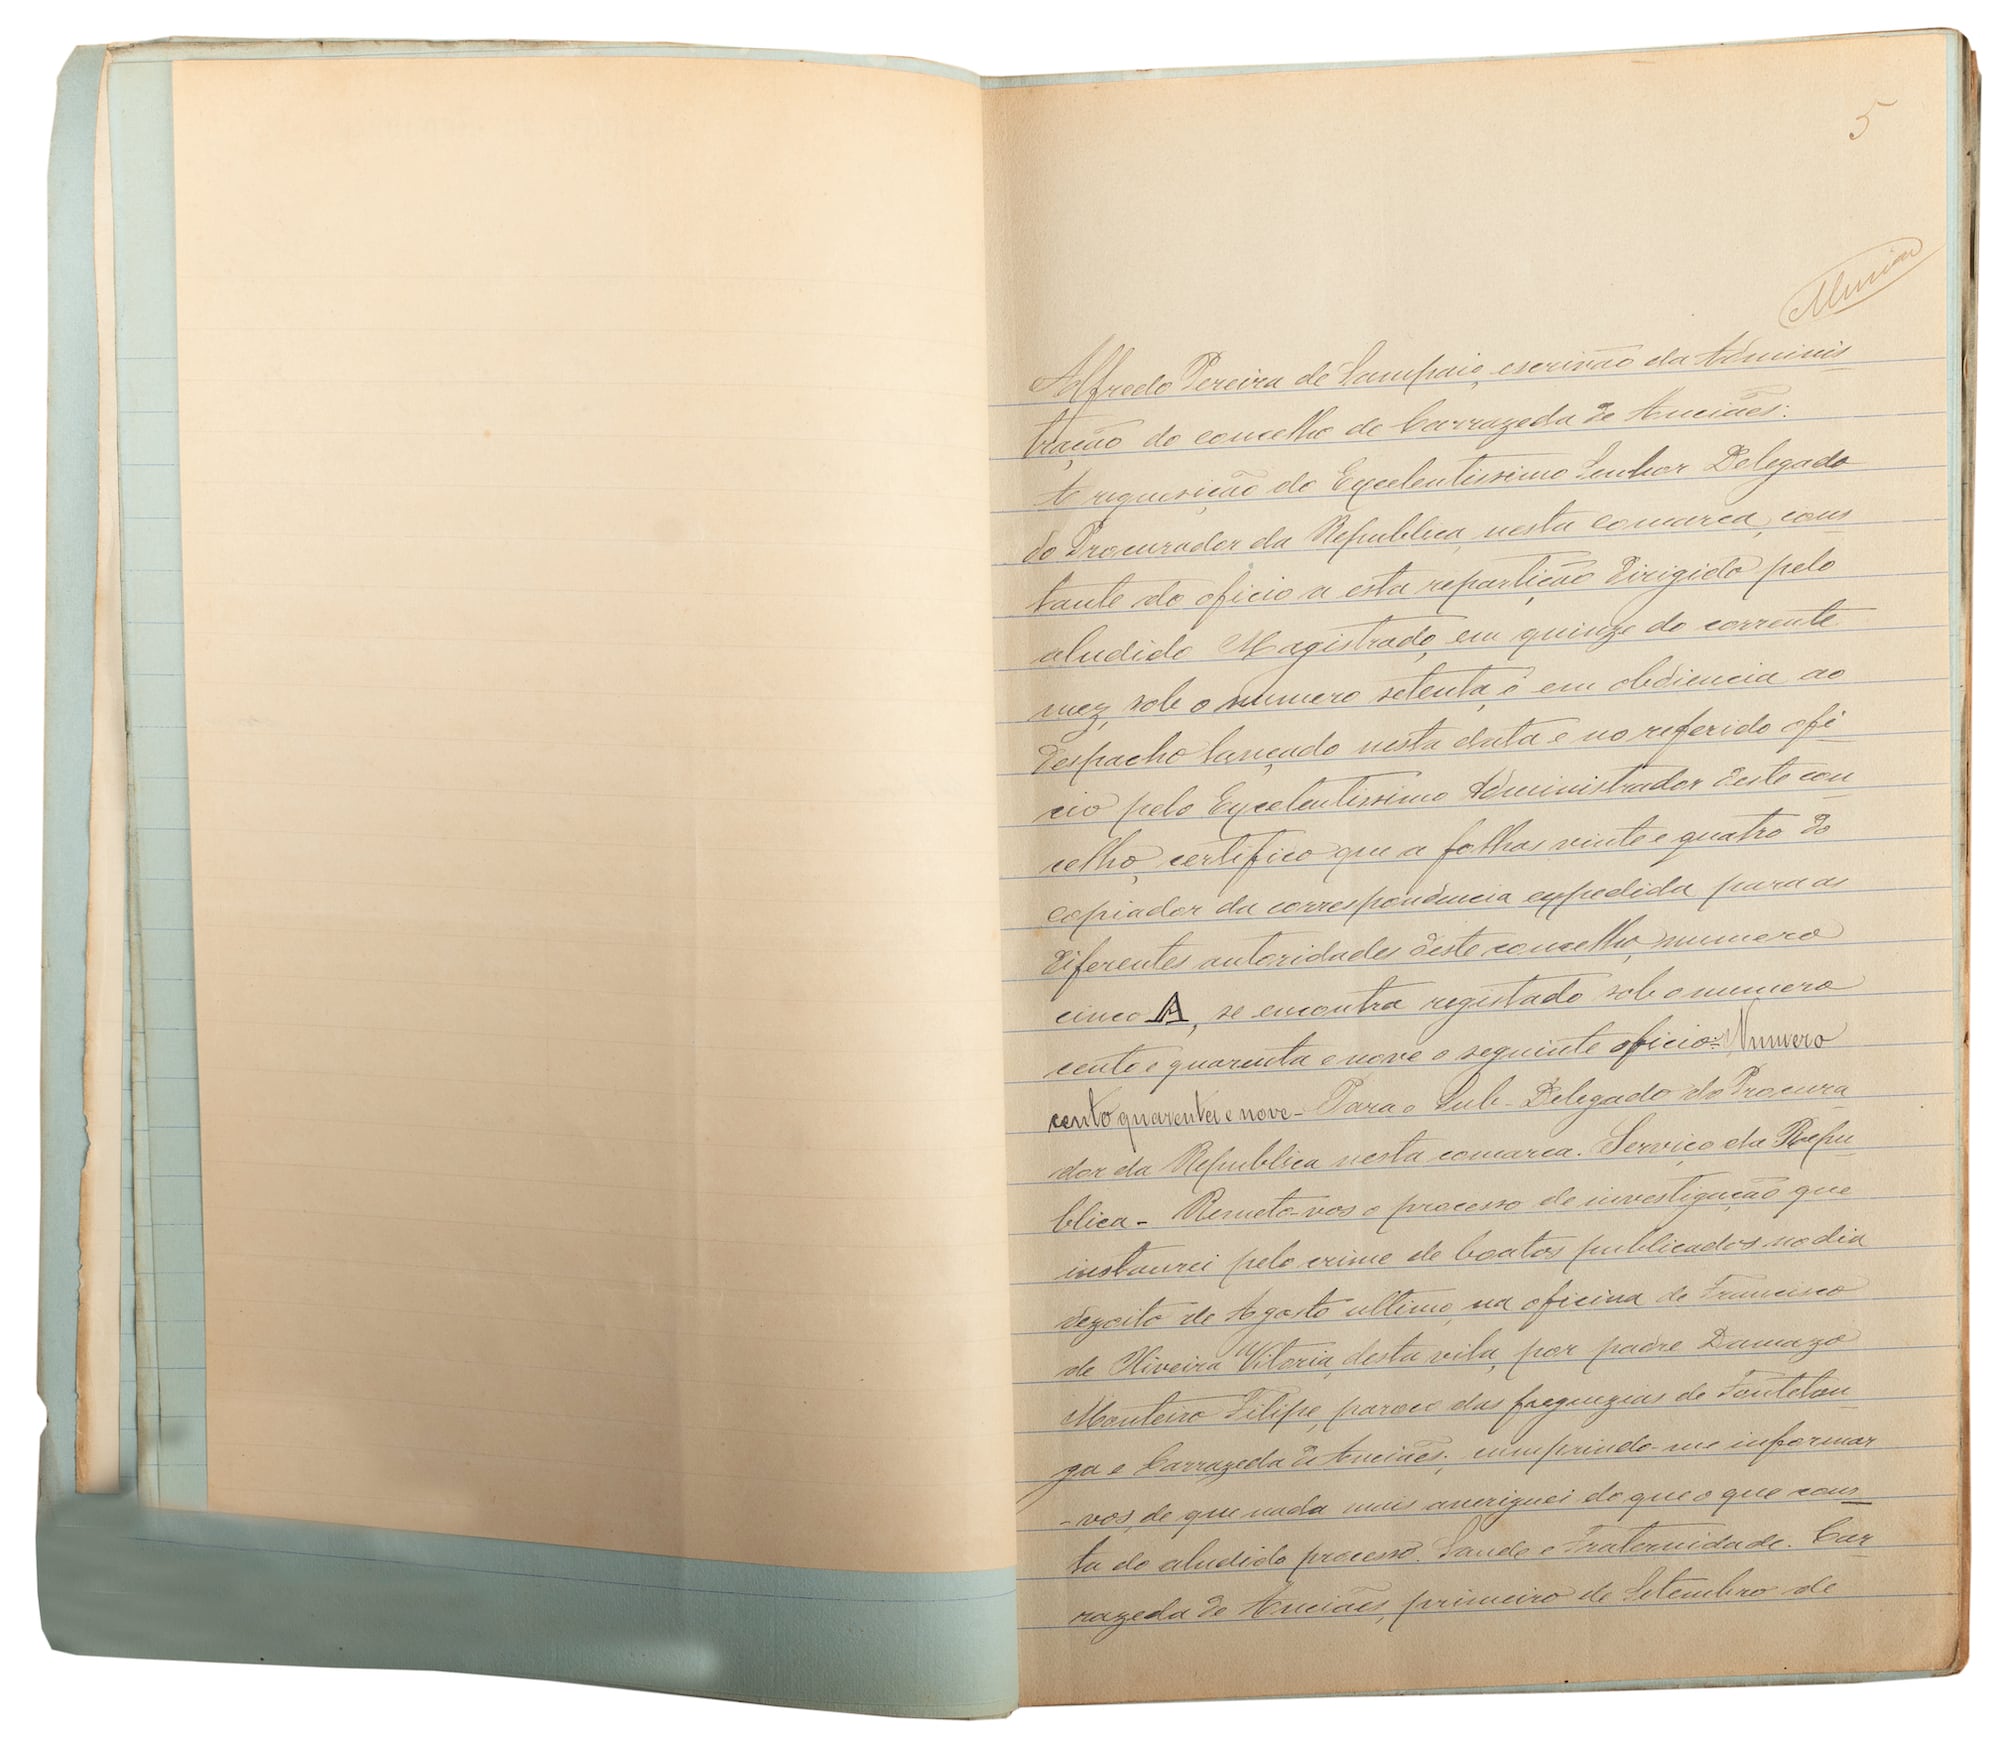 5
Alfredo Pereira de Sampaio, escrivão da Adminis
tração do concelho de Carrazeda de Anciães:
A requesição do Excelentissimo Senhor Delegado
do Procurador da Republica, nesta comarca, cons
tante do oficio a esta repartição dirigido pelo
aludido Magistrado, em quinze do corrente
mez, sob o numero setenta, e em obdiencia ao
despacho lançado nesta data e no referido ofi
cio pelo Excelentissimo Administrador deste con
celho, certifico que a folhas vinte e quatro do
copiador da correspondencia expedida para as
diferentes autoridades deste concelho, numero
cinco A, se encontra registado sob o numero
cento e quarenta e nove o seguinte oficio: Numero
cento quarenta e nove - Para o Sub-Delegado do Procura
dor da Republica nesta comarca. Serviço da Repu-
blica - Remeto-vos o processo de investigação que
instaurei pelo crime de boatos publicados no dia
dezoito de Agosto ultimo, na oficina de Francisco
de Oliveira Vitoria, desta vila, por padre Damazo
Monteiro Filipe, paroco das freguezias de Fontelon
ga e Carrazeda de Anciães; cumprindo-me informar
-vos, de que nada mais averiguei do que o que cons
ta do aludido processo. Saude e Fraternidade. Car
razeda de Anciães, primeiro de Setembro de